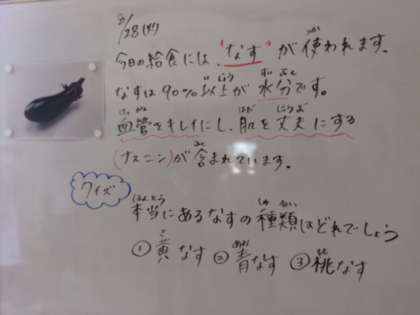 28(火)
今日の給食には、"なす"が使われます。
なすは90%以上が水分です。
血管をキレイにし、肌を丈夫にする
(ナスニン)が含まれています。
クイズ
本当にあるなすの種類はどれでしょう
①黄なす ②青なす ③桃なす